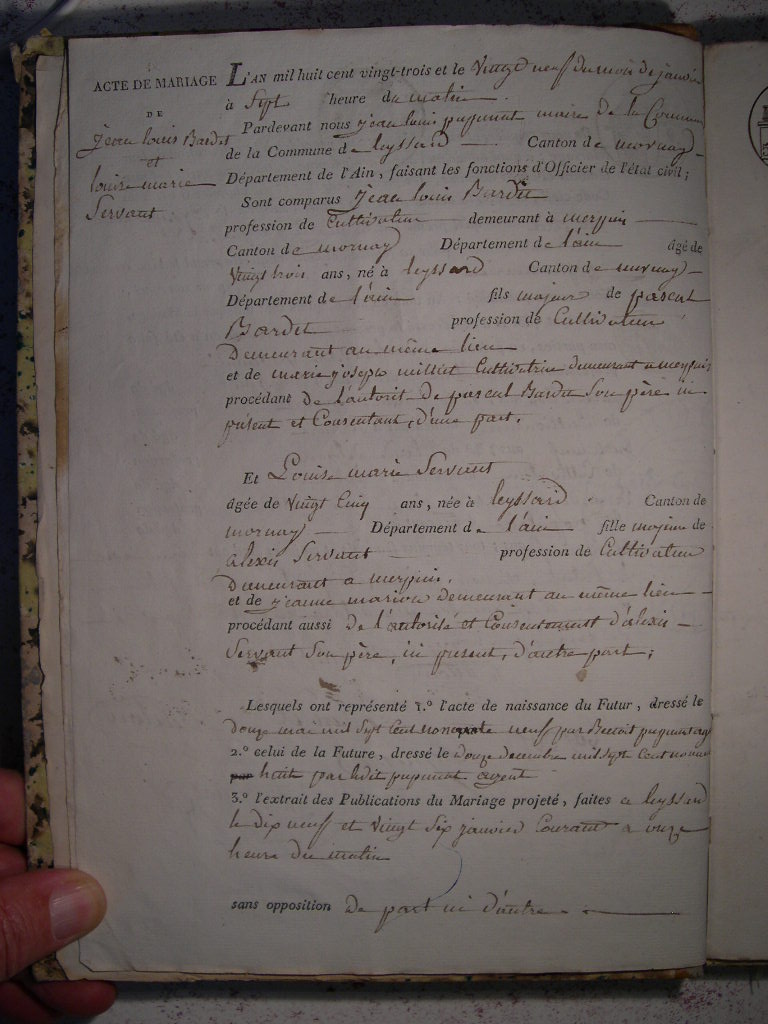 ACTE DE MARIAGE
DE
Jean louis Bardet
et
louise marie
Servant
L'AN mil huit cent vingt-trois et le Vingt neuf du mois de janvier
à Sept heure du matin
Pardevant nous jean louis pupunat maire de la Commune
de la Commune de leyssard Canton de mornay
Département de l'Ain, faisant les fonctions d'Officier de l'état civil;
Sont comparus Jean louis Bardet
profession de Cultivateur demeurant à merpuis
Canton de mornay Département de l'ain âgé de
Vingt trois ans, né à leyssard Canton de mornay
Département de l'ain fils majeur de pascal
Bardet profession de Cultivateur
Demeurant au même lieu
et de marie joseph milliet Cultivatrice demeurant a merpuis
procédant de l'autorit de pascal Bardet Son père ici
présent et Consentant, d'une part.
Et Louise marie Servant
âgée de Vingt Cinq ans, née à leyssard Canton de
mornay Département de l'ain fille majeure de
alexis Servant profession de Cultivateur
Demeurant a merpuis.
et de jeanne marion demeurant au même lieu
procédant aussi de l'autorisé et Consentement d'alexis
Servant Son père, ici présent, d'autre part;
Lesquels ont représenté 1.º l'acte de naissance du Futur, dressé le
douze mai mil Sept Cent nonante neuf par Benoit pupunat
2.º celui de la Future, dressé le douze decembre mil Sept Cent nonante
huit par ledit pupunat agent
3.º l'extrait des Publications du Mariage projeté, faites a leyssard
le dix neuf et Vingt Six janvier Courant a onze
heure du matin
sans opposition de part ni d'autre